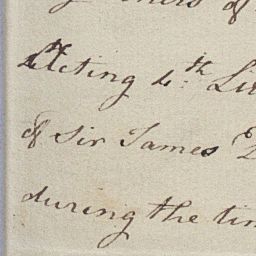 of
Acting 4th Li
of Sir James
during the tim